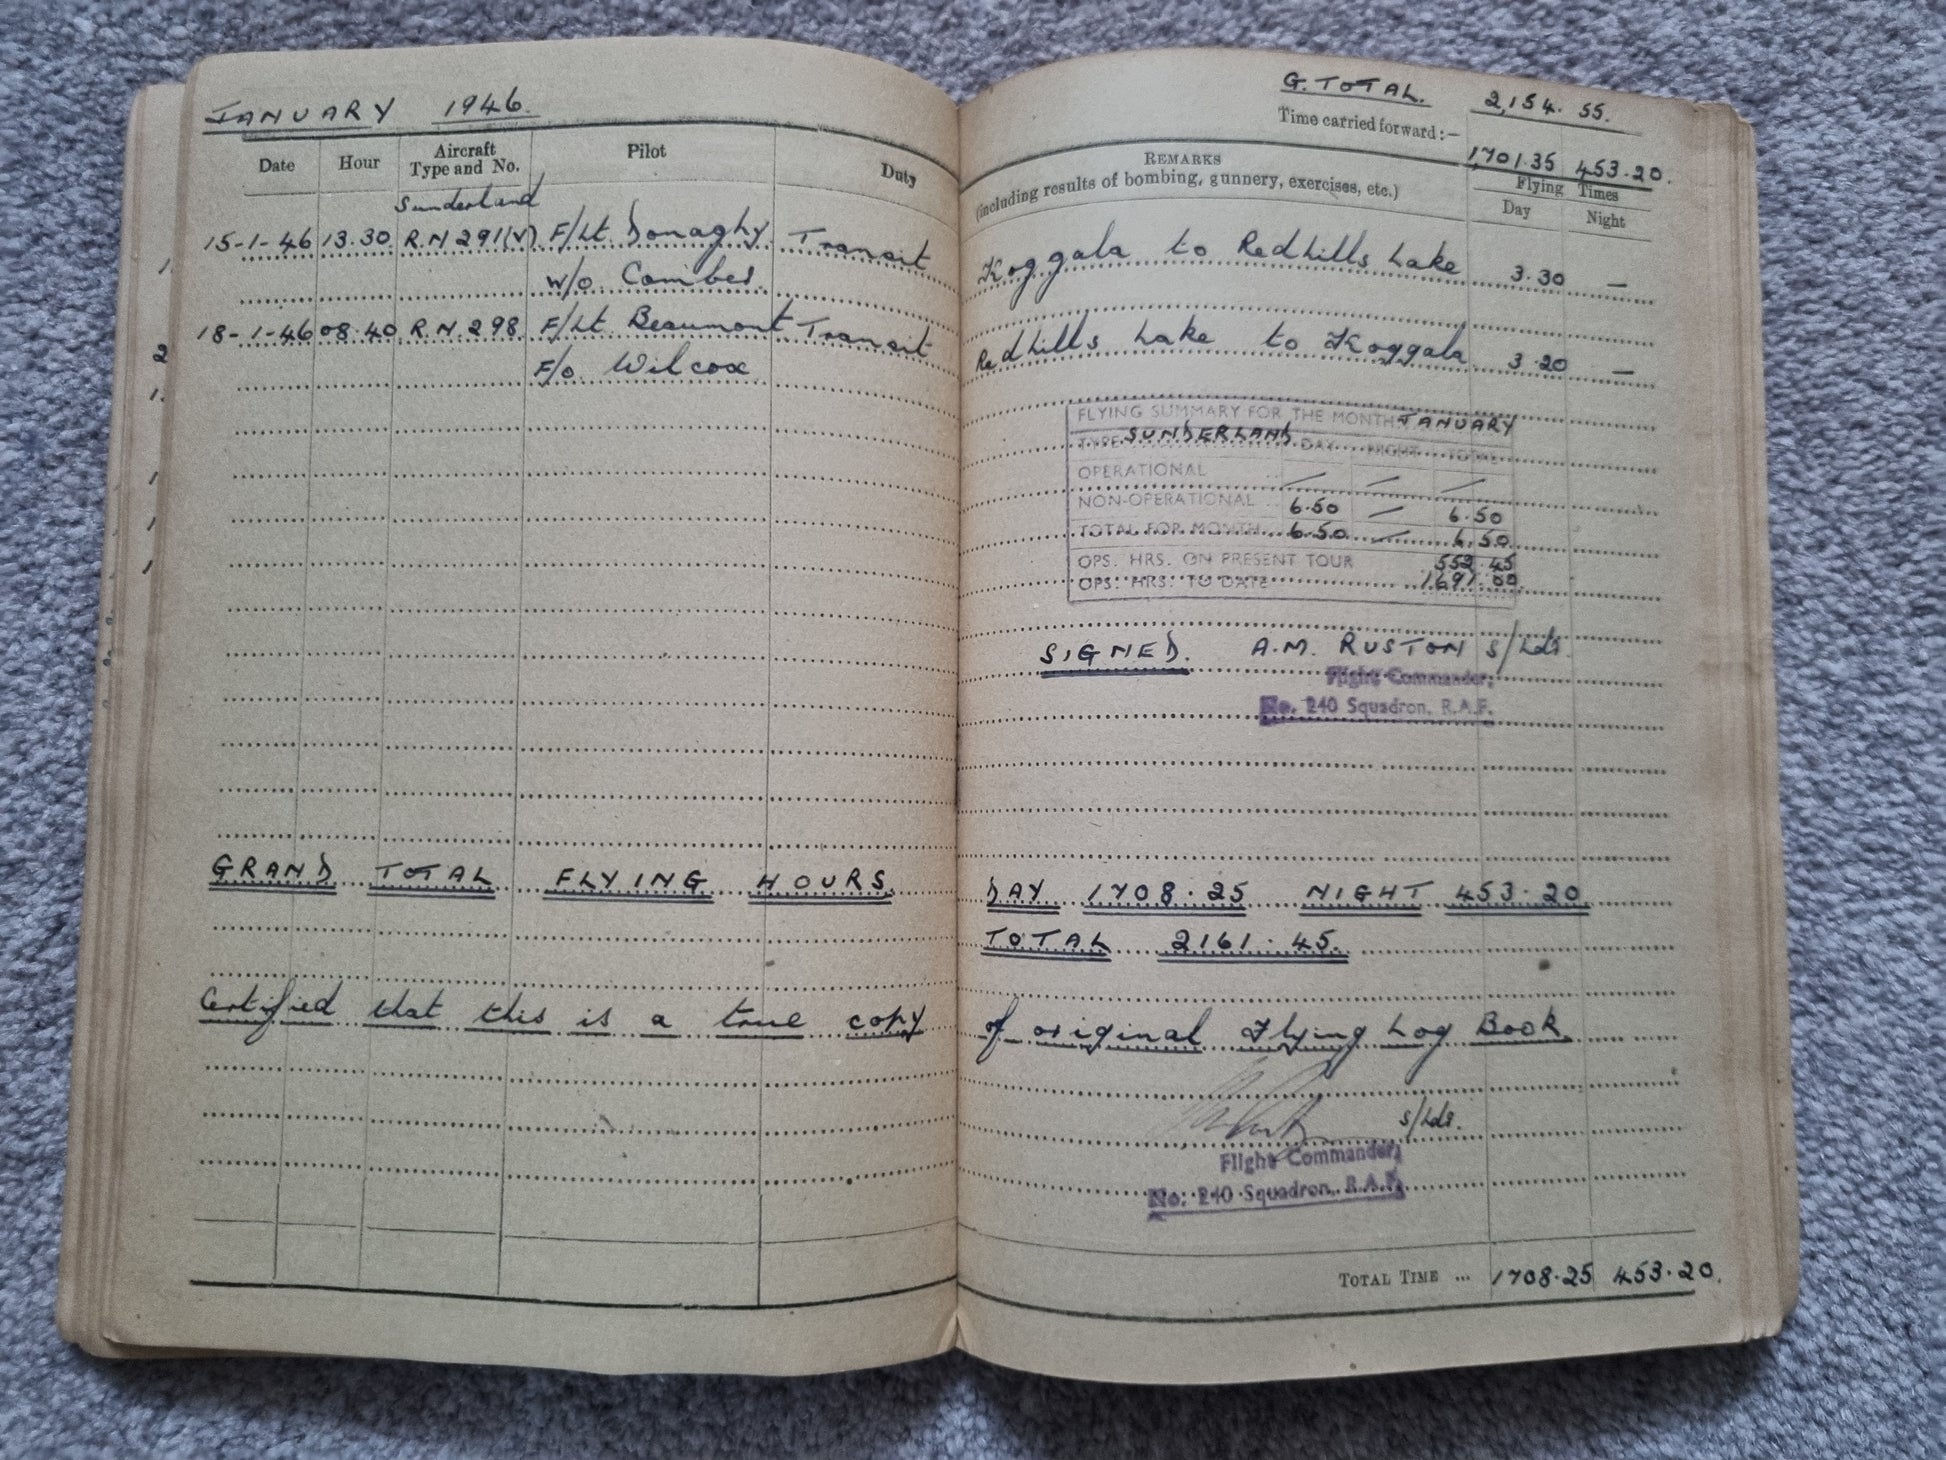 JANUARY 1946.
Date Hour Aircraft Type and No. Pilot Duty
Sunderland
15-1-46 13.30 R.N 291(V) F/Lt Donaghy Transit
W/O Combes.
18-1-46 08.40 R.N. 298 F/Lt Beaumont Transit
F/O Wilcox
GRAND TOTAL FLYING HOURS.
Certified that this is a true copy
G. TOTAL. 2,154.55.
Time carried forward:— 1701.35 453.20.
REMARKS
(including results of bombing, gunnery, exercises, etc.)
Flying Times
Day Night
Koggala to Redhills Lake 3.30 —
Redhills Lake to Koggala 3.20 —
FLYING SUMMARY FOR THE MONTH JANUARY
TYPE SUNDERLAND DAY NIGHT TOTAL
OPERATIONAL / / /
NON-OPERATIONAL 6.50 / 6.50
TOTAL FOR MONTH 6.50 / 6.50
OPS. HRS. ON PRESENT TOUR 552.45
OPS. HRS. TO DATE 1691.00
SIGNED. A.M. RUSTON S/Ldr.
Flight Commander,
No. 240 Squadron, R.A.F.
DAY 1708.25 NIGHT 453.20
TOTAL 2161.45.
of original Flying Log Book
S/Ldr.
Flight Commander,
No. 240 Squadron, R.A.F.
TOTAL TIME ... 1708.25 453.20.